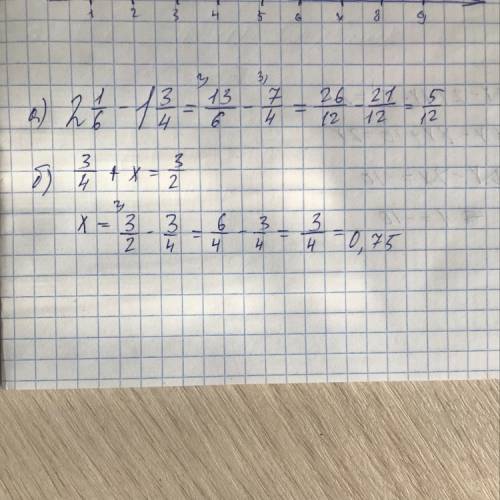 1 2 3 4 5 6 7 8 9
а) 2 1/6 - 1 3/4 = ²⁾13/6 - ³⁾7/4 = 26/12 - 21/12 = 5/12
б) 3/4 + x = 3/2
x = ²⁾3/2 - 3/4 = 6/4 - 3/4 = 3/4 = 0,75